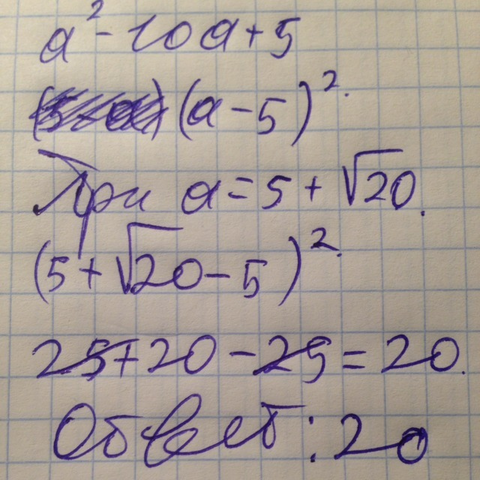 a² - 10a + 5
(a - 5)².
При a = 5 + √20.
(5 + √20 - 5)².
25 + 20 - 25 = 20.
Ответ: 20